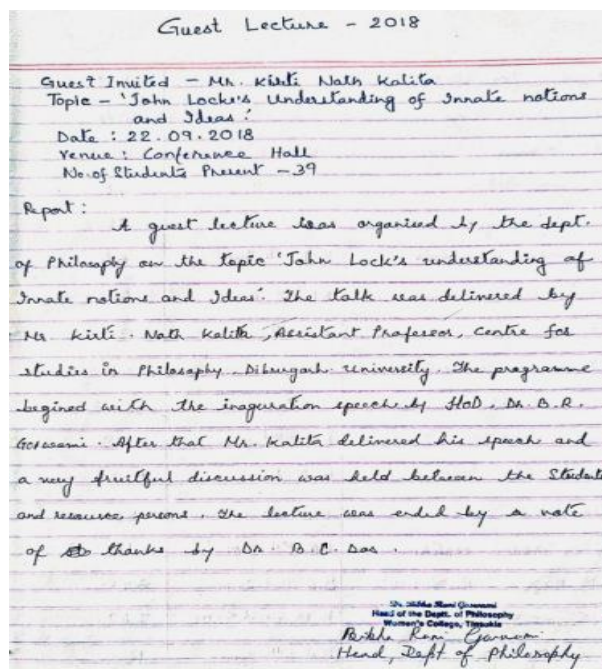 Guest Lecture - 2018
Guest Invited - Mr. Kirti Nath Kalita
Topic - 'John Locke's Understanding of Innate notions
and Ideas.'
Date : 22.09.2018
Venue : Conference Hall
No. of Students Present - 39
Report :
A guest lecture was organised by the dept.
of Philosophy on the topic 'John Lock's understanding of
Innate notions and Ideas'. The talk was delivered by
Mr Kirti. Nath Kalita, Assistant Professor, Centre for
studies in Philosophy, Dibrugarh University. The programme
begined with the inaguration speech by HoD, Dr. B.R.
Goswami. After that Mr. Kalita delivered his speech and
a very fruitful discussion was held between the Students
and resource persons. The lecture was ended by a note
of thanks by Dr. B.C. Das.
Rani Goswami
Head of the Deptt. of Philosophy
Women's College, Tinsukia
Rani Goswami
Head, Dept of Philosophy